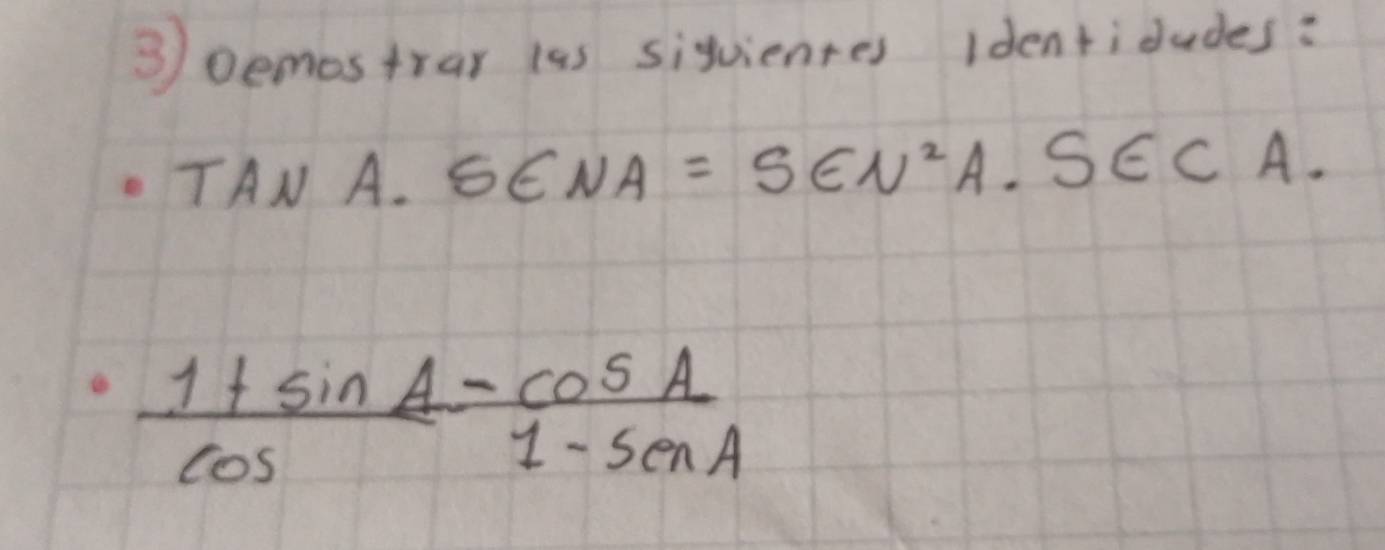 3) Demostrar las siguientes identidades:
• TAN A. SENA = SEN²A. SEC A.
• 1 + sin A - cos A
cos 1 - sen A